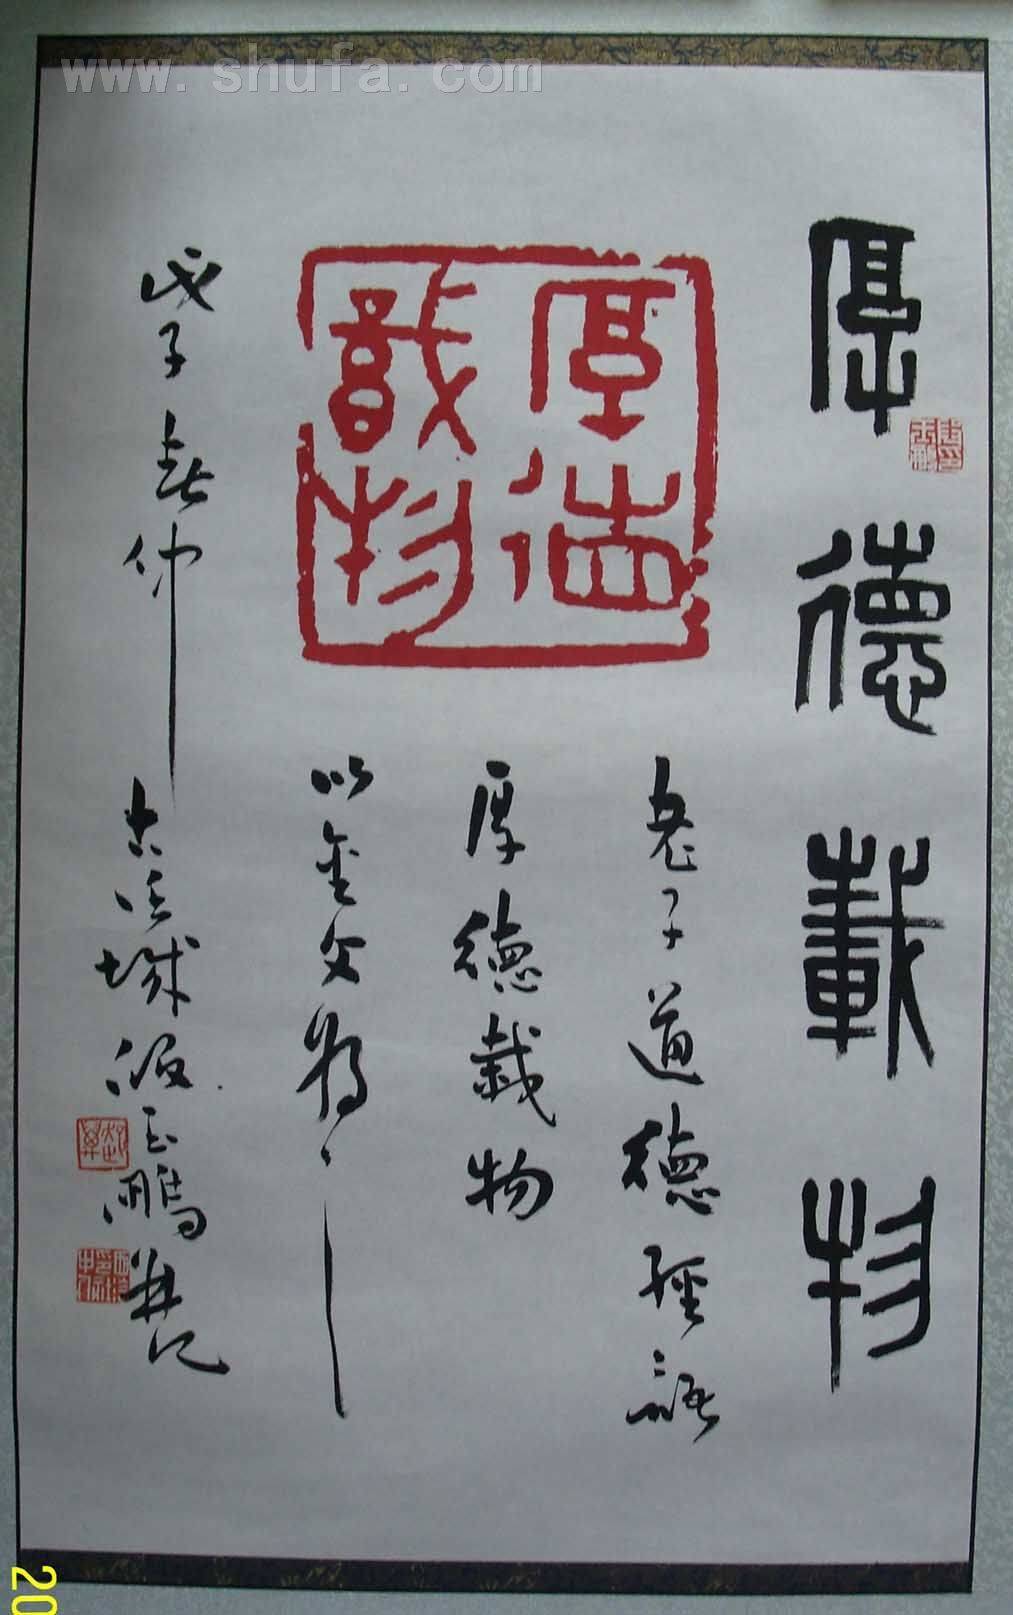 www.shufa.com
厚德載物
厚德載物
老子道德經語
厚德載物
以金文為之
戊子春仲
古彭城段玉鵬并記
20